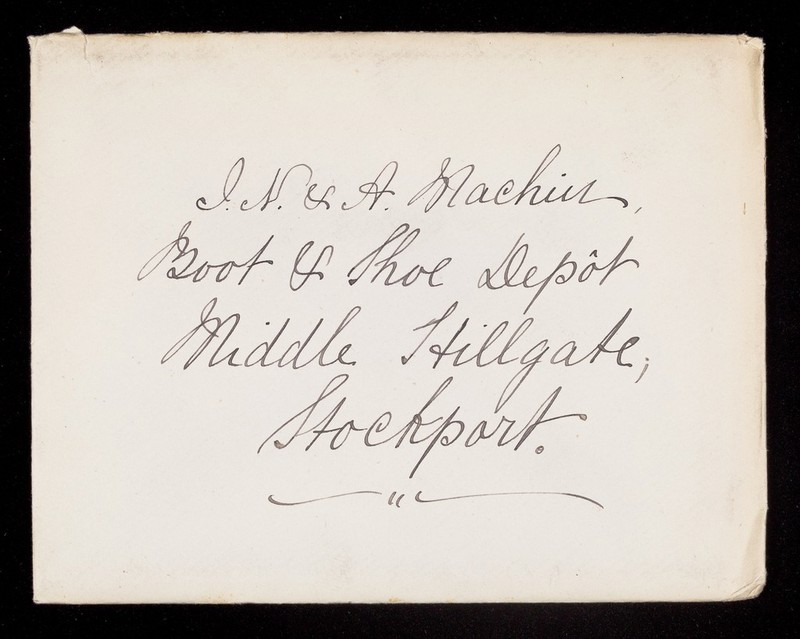 J. N. & A. Machin,
Boot & Shoe Depôt
Middle Hillgate,
Stockport.